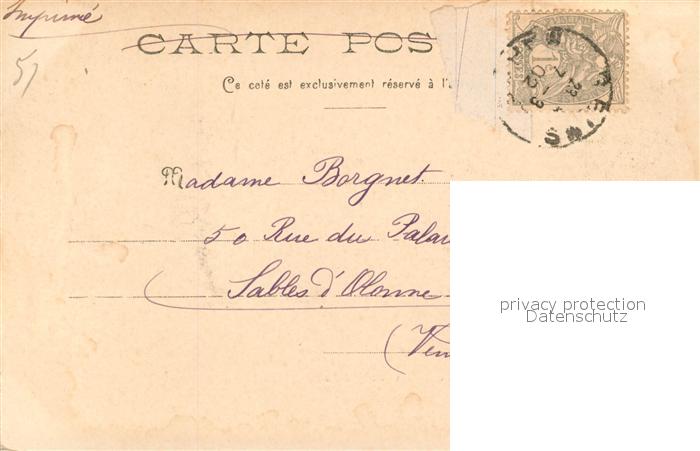 Imprimé
CARTE POS
51
Ce coté est exclusivement réservé à l'a
Madame Borgnet
50 Rue du Palai
Sables d'Olonne
(Ven
privacy protection
Datenschutz